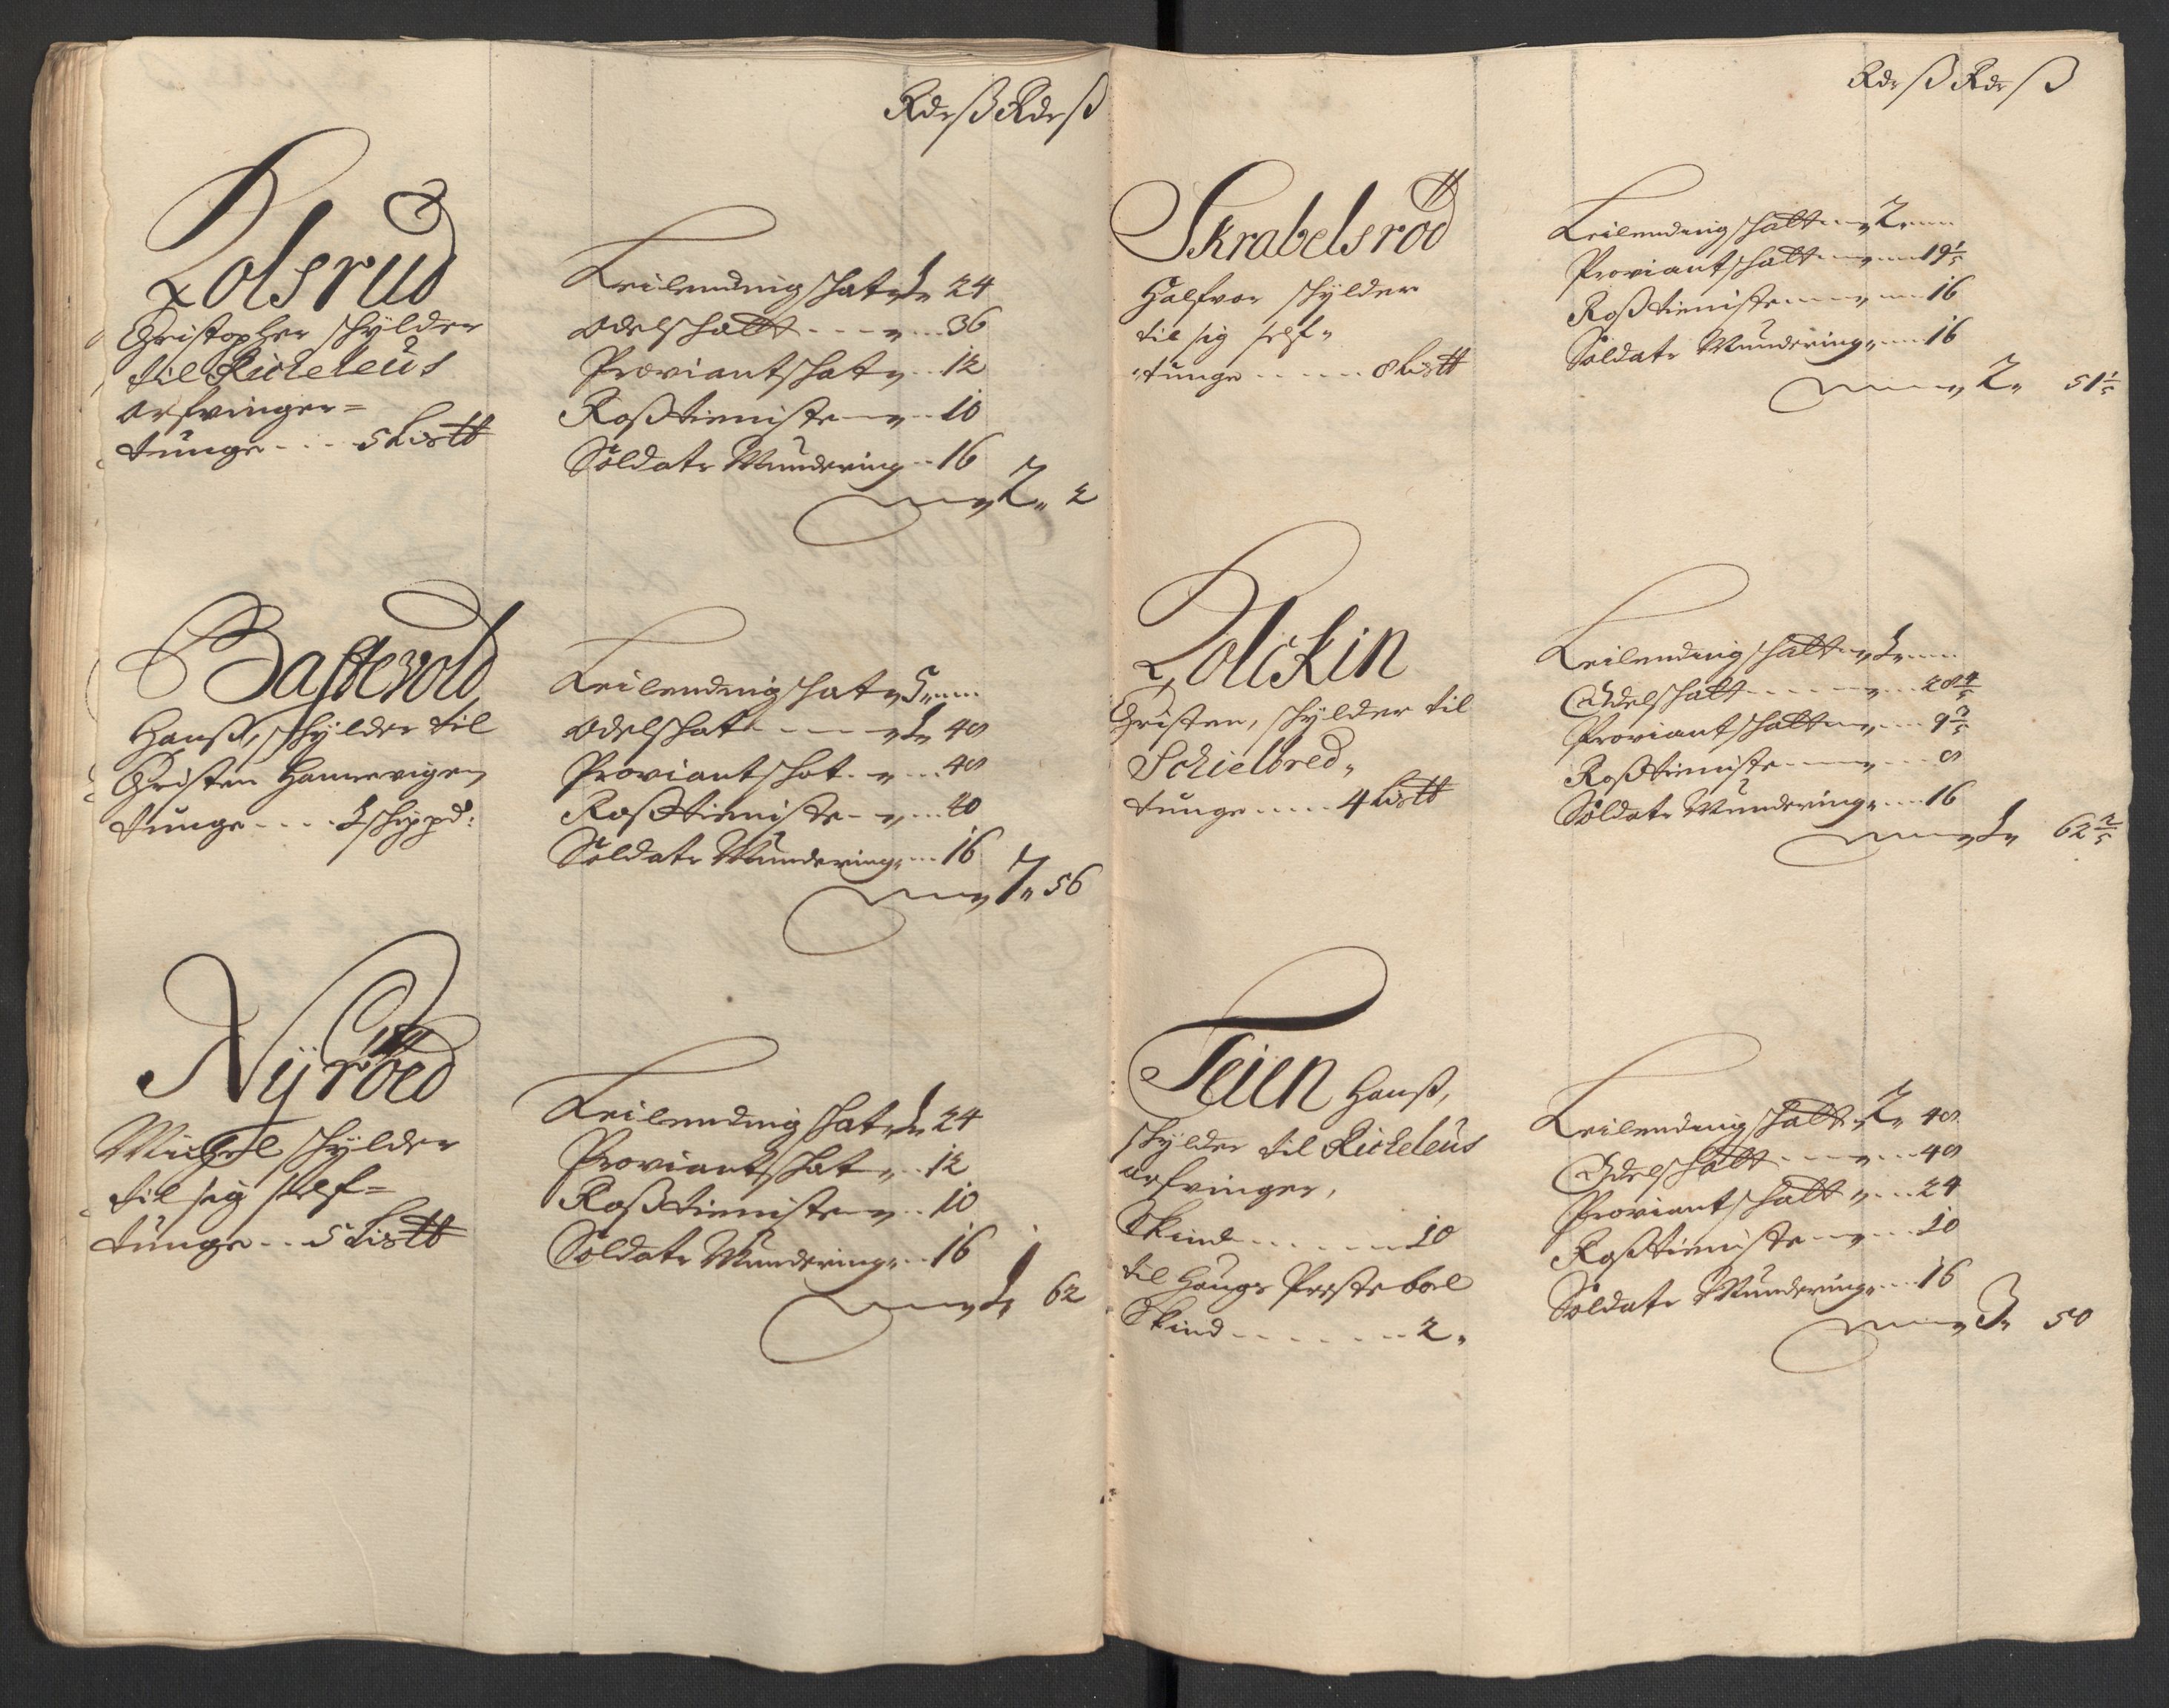 Rdr ß Rdr ß
Rolsrud
Christopher skylder
til Richeleus
arfvinger=
tunge - - - 5 Listt
Leilending shat „ 1„ 24
Odelschatt - - - „ - - 36
Proviantschat „ - - 12
Roßtieniste - „ - - 10
Soldate Mundering - - 16
„ 2„ 2
Bastevold
Hanß, skylder til
Christen Hannevigen
tunge - - - - 1 skippd:
Leilending shat „ 5„ - -
Odelschat - - - „ 1„ 48
Proviantschat - „ - - 48
Roßtieniste - „ - - 40
Soldate Mundering „ - - 16
„ 7„ 56
Nyröed
Michel skylder
til sig self=
tunge - - 5 Listt
Leilending shat „ 1„ 24
Proviantschat „ - - 12
Roßtieniste „ - - 10
Soldate Mundering „ - - 16
„ 1„ 62
Rdr ß Rdr ß
Skrabelsröd
Halfvor skylder
til sig self„
tunge - - - - - 8 Listt
Leilending schatt „ 2„ - -
Proviantschatt „ - - 19 1/5
Roßtieniste - - „ - - 16
Soldate Mundering „ - - 16
„ 2„ 51 1/5
Rolckin
Christen, skylder til
Schielbred„
tunge - - - - 4 Listt
Leilending schatt „ 1„ - -
Odelschatt - - - - „ - - 28 4/5
Proviantschatt „ - - 9 3/5
Roßtieniste - - „ - - 8
Soldate Mundering „ - - 16
„ 1„ 62 2/5
Teien Hanß,
skylder til Richeleus
arfvinger,
Skind - - - - - - 10
til Haugs Prestebol
Skind - - - - - - - 2„
Leilending schatt „ 2„ 48
Odelschatt - - - „ - - 48
Proviantschatt „ - - 24
Roßtieniste - „ - - 10
Soldate Mundering „ - - 16
„ 3„ 50